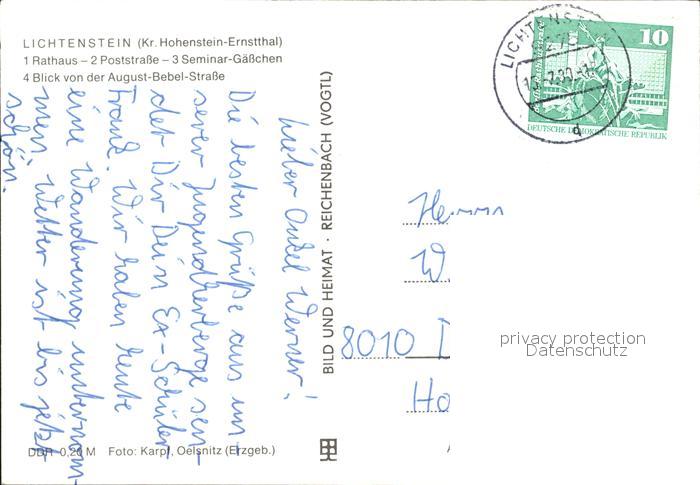 LICHTENSTEIN (Kr. Hohenstein-Ernstthal)
1 Rathaus – 2 Poststraße – 3 Seminar-Gäßchen
4 Blick von der August-Bebel-Straße
Lieber Onkel Werner!
Die besten Grüße aus un-
serer Jugendherberge sen-
det Dir Dein Ex-Schüler
Frank. Wir haben heute
eine Wanderung unternom-
men. Wetter ist bis jetzt
schön.
DDR 0,20 M Foto: Karpf, Oelsnitz (Erzgeb.)
BILD UND HEIMAT · REICHENBACH (VOGTL)
LICHTENSTEIN
d
10
DEUTSCHE DEMOKRATISCHE REPUBLIK
Herrn
W.
8010 D
Ho
privacy protection
Datenschutz